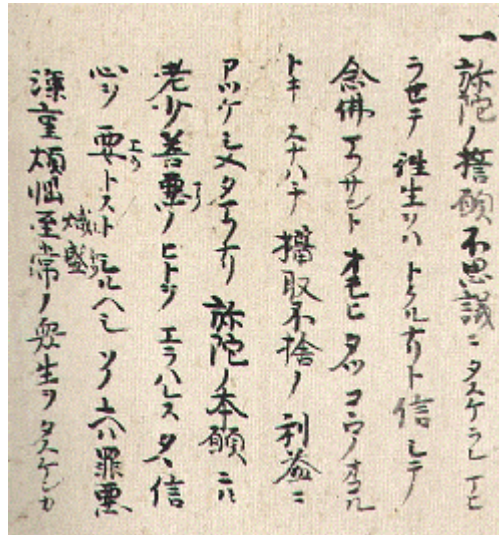 一 弥陀ノ誓願不思議ニタスケラレマヒ
ラセテ往生ヲハトクルナリト信シテ
念佛マウサントオモヒタツコヽロノオコル
トキスナハチ攝取不捨ノ利益ニ
アツケシメタマフナリ弥陀ノ本願ニハ
老少善悪ノヒトヲエラハレスタヽ信
心ヲ要トストシルヘシソノユヘハ罪悪
深重煩悩熾盛ノ衆生ヲタスケンカ